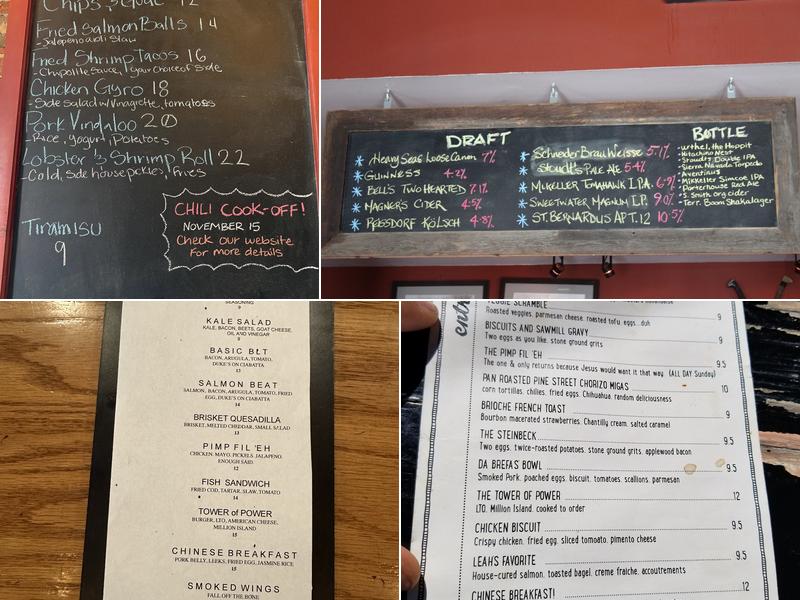 Chips & Goat 12
Fried Salmon Balls 14
- Jalapeno aioli Slaw
Fried Shrimp Tacos 16
- Chipotle sauce, your choice of side
Chicken Gyro 18
- Side salad w/ Vinagrette, tomatoes
Pork Vindaloo 20
- Rice, yogurt, Potatoes
Lobster & Shrimp Roll 22
- Cold, side house pickles, fries
Tiramisu
9
CHILI COOK-OFF!
NOVEMBER 15
Check our website
for more details
DRAFT
Heavy Seas Loose Canon 7%
GUINNESS 4.2%
BELL'S TWO HEARTED 7.1%
MAGNER'S CIDER 4.5%
REISSDORF KÖLSCH 4.8%
Schneider Brau Weisse 5.1%
Stoudt's Pale Ale 5.4%
MIKELLER TOMAHAWK I.P.A. 6.9%
SWEETWATER MAGNUM I.P. 9.0%
ST. BERNARDUS APT. 12 10.5%
BOTTLE
- Urthel, the Hoppit
- Hitachino Nest
- Stoudts Double IPA
- Sierra Nevada Torpedo
- Aventinus
- Mikkeller Simcoe IPA
- Porterhouse Red Ale
- S. Smith org cider
- Terr. Boom Shakalager
SEASONING
9
KALE SALAD
KALE, BACON, BEETS, GOAT CHEESE,
OIL AND VINEGAR
9
BASIC BLT
BACON, ARUGULA, TOMATO,
DUKE'S ON CIABATTA
13
SALMON BEAT
SALMON, BACON, ARUGULA, TOMATO, FRIED
EGG, DUKE'S ON CIABATTA
14
BRISKET QUESADILLA
BRISKET, MELTED CHEDDAR, SMALL SALAD
13
PIMP FIL 'EH
CHICKEN, MAYO, PICKELS, JALAPENO,
ENOUGH SAID.
12
FISH SANDWICH
FRIED COD, TARTAR, SLAW, TOMATO
14
TOWER of POWER
BURGER, LTO, AMERICAN CHEESE,
MILLION ISLAND
15
CHINESE BREAKFAST
PORK BELLY, LEEKS, FRIED EGG, JASMINE RICE
15
SMOKED WINGS
FALL OFF THE BONE
VEGGIE SCRAMBLE 9
Roasted veggies, parmesan cheese, roasted tofu, eggs...duh
BISCUITS AND SAWMILL GRAVY 9
Two eggs as you like, stone ground grits
THE PIMP FIL 'EH 9.5
The one & only returns because Jesus would want it that way (ALL DAY Sunday)
PAN ROASTED PINE STREET CHORIZO MIGAS 10
corn tortillas, chilies, fried eggs, Chihuahua, random deliciousness
BRIOCHE FRENCH TOAST 9
Bourbon macerated strawberries, Chantilly cream, salted caramel
THE STEINBECK 9.5
Two eggs, twice-roasted potatoes, stone ground grits, applewood bacon
DA BREFAS BOWL 9.5
Smoked Pork, poached eggs, biscuit, tomatoes, scallions, parmesan
THE TOWER OF POWER 12
LTO, Million Island, cooked to order
CHICKEN BISCUIT 9.5
Crispy chicken, fried egg, sliced tomoato, pimento cheese
LEAH'S FAVORITE 9.5
House-cured salmon, toasted bagel, creme fraiche, accoutrements
CHINESE BREAKFAST! 12